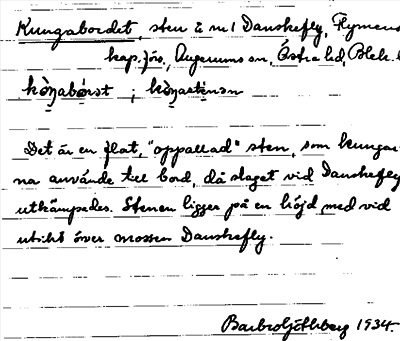 Kungabordet, sten å nr 1 Danskefly, Flymens
kap.förs., Augerums sn, Östra hd, Blek. l
kòŋabórət ; kòŋastenən
Det är en flat, "oppallad" sten, som kungar-
na använde till bord, då slaget vid Danskefly
utkämpades. Stenen ligger på en höjd med vid
utsikt över mossen Danskefly.
Barbro Göthberg 1934.